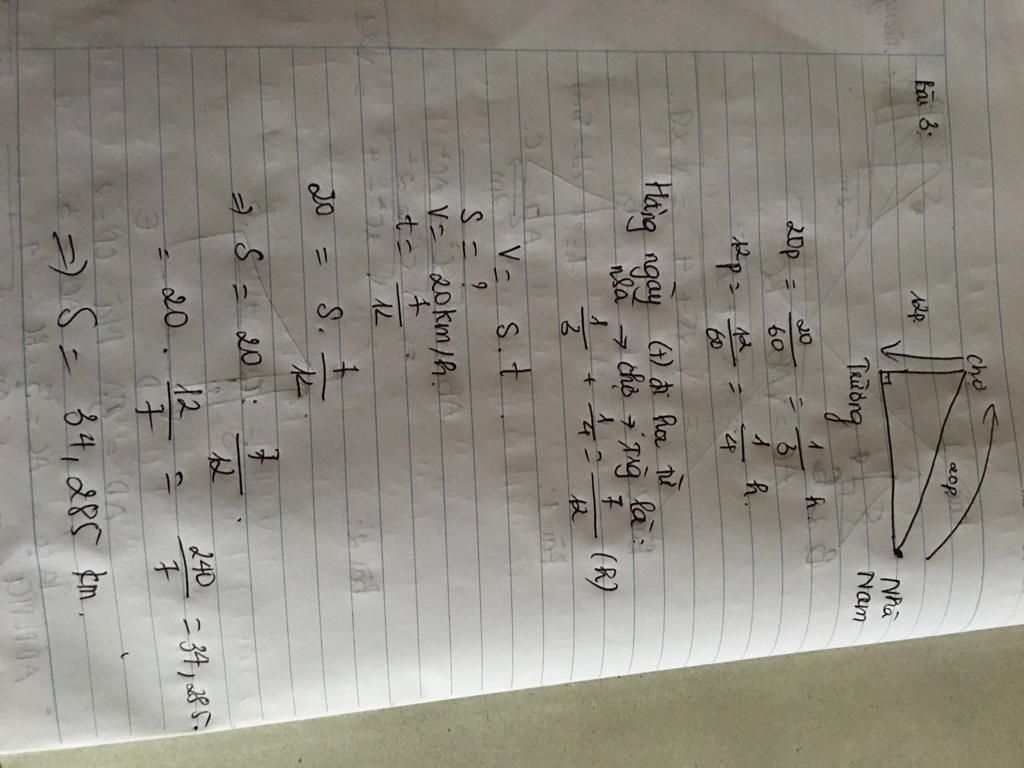 Bài 3.
Chợ
20p
12p
Trường
Nhà Nam
20p = 20/60 = 1/3 h.
12p = 12/60 = 1/4 h.
Hàng ngày (t) đi ha từ
nhà → chợ → trg là:
1/3 + 1/4 = 7/12 (h)
V = S.t.
S = ?
V = 20km/h.
t = 7/12
20 = S. 7/12.
=> S = 20 : 7/12.
= 20. 12/7 = 240/7 = 34,285.
=> S = 34,285 km.